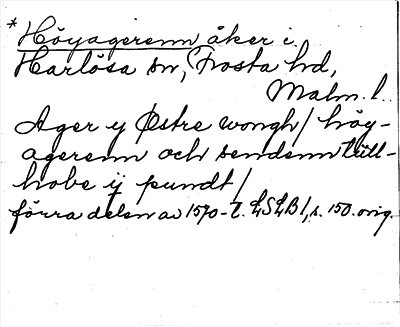 *Höyagerenn åker i
Harlösa sn, Frosta hd,
Malm. l.
Ager y Østre wongh / höy-
agerenn och sendenn tüll-
hobe ij pundt /
förra delen av 1570-t. LSLB 1, s. 150. orig.